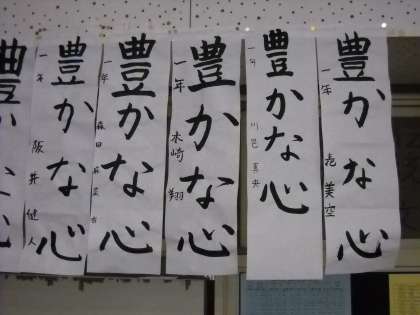 豊かな心
一年
美空
豊かな心
豊かな心
一年 木崎 翔
豊かな心
一年 森田
豊かな心
一年 阪井 健人
豊かな心